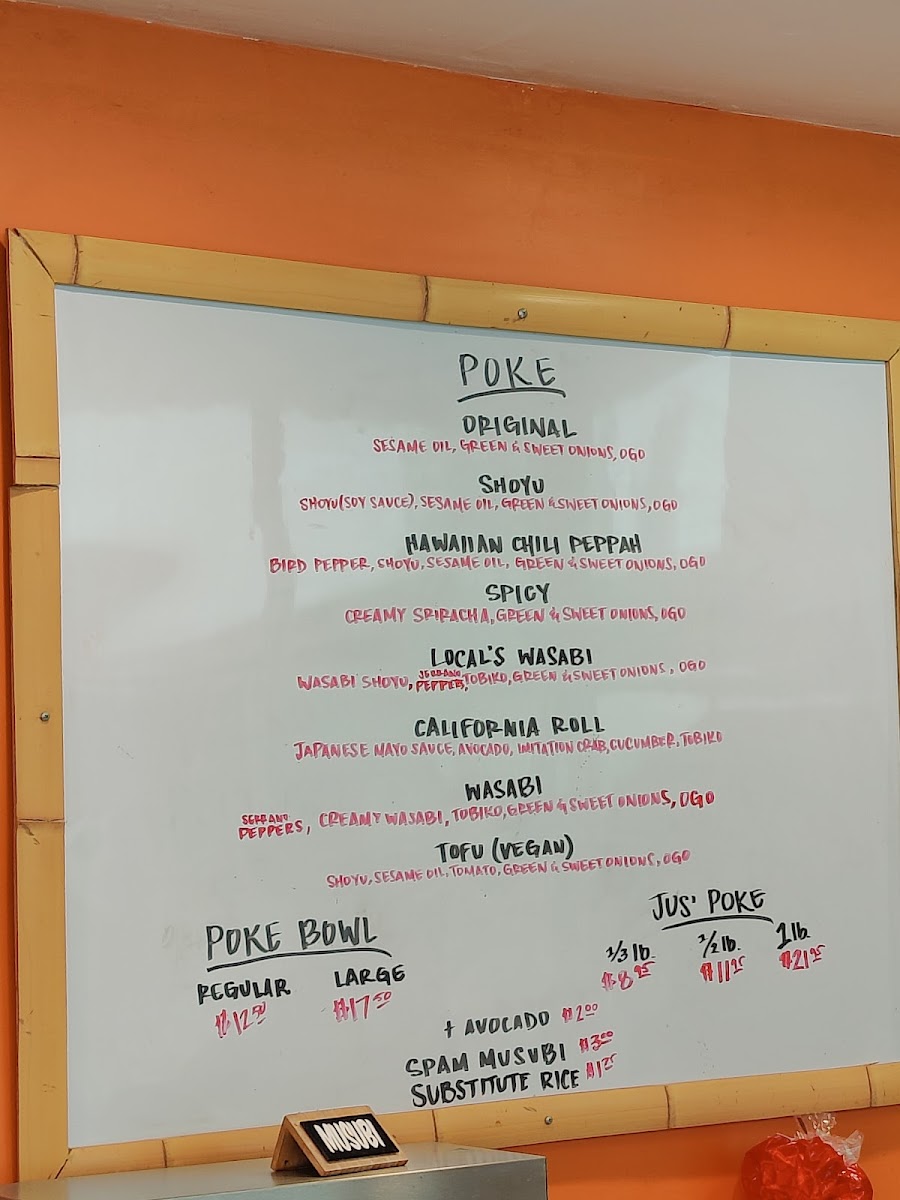 POKE
ORIGINAL
SESAME OIL, GREEN & SWEET ONIONS, OGO
SHOYU
SHOYU (SOY SAUCE), SESAME OIL, GREEN & SWEET ONIONS, OGO
HAWAIIAN CHILI PEPPAH
BIRD PEPPER, SHOYU, SESAME OIL, GREEN & SWEET ONIONS, OGO
SPICY
CREAMY SRIRACHA, GREEN & SWEET ONIONS, OGO
LOCAL'S WASABI
WASABI SHOYU, SERRANO PEPPERS, TOBIKO, GREEN & SWEET ONIONS, OGO
CALIFORNIA ROLL
JAPANESE MAYO SAUCE, AVOCADO, IMITATION CRAB, CUCUMBER, TOBIKO
WASABI
SERRANO PEPPERS, CREAMY WASABI, TOBIKO, GREEN & SWEET ONIONS, OGO
TOFU (VEGAN)
SHOYU, SESAME OIL, TOMATO, GREEN & SWEET ONIONS, OGO
POKE BOWL
REGULAR LARGE
$12.50 $17.50
JUS' POKE
1/3 lb. 1/2 lb. 1 lb.
$8.25 $11.95 $21.95
+ AVOCADO $2.00
SPAM MUSUBI $3.00
SUBSTITUTE RICE $1.25
MUSUBI